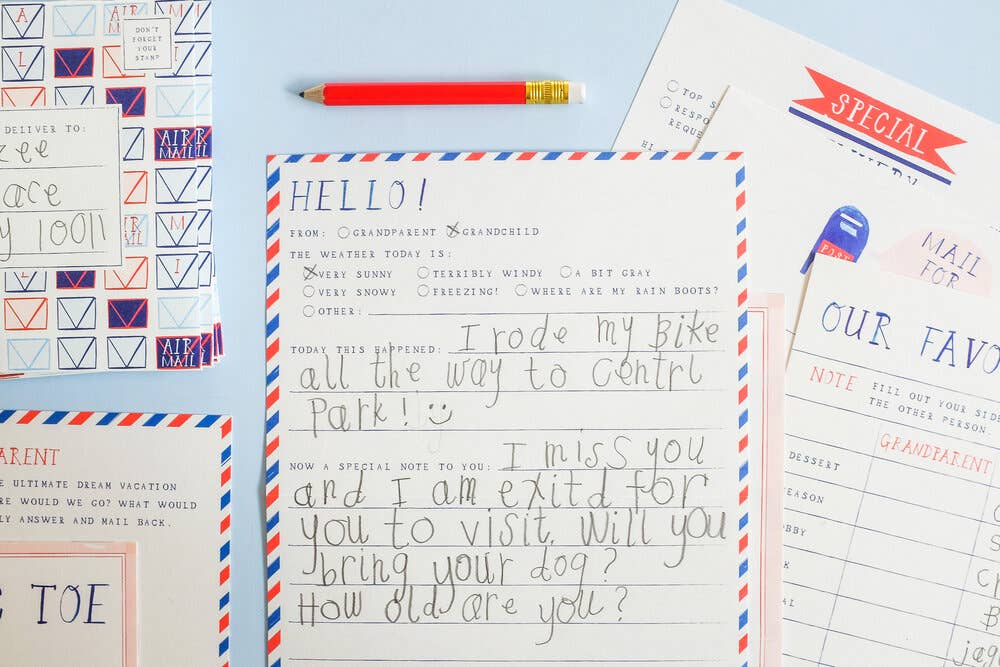 DON'T
FORGET
YOUR
STAMP
DELIVER TO:
zee
ace
y 10011
AIR
MAIL
AIR
MAIL
HELLO!
FROM: GRANDPARENT GRANDCHILD
THE WEATHER TODAY IS:
VERY SUNNY TERRIBLY WINDY A BIT GRAY
VERY SNOWY FREEZING! WHERE ARE MY RAIN BOOTS?
OTHER:
TODAY THIS HAPPENED: I rode my Bike
all the way to Centrl
Park! :)
NOW A SPECIAL NOTE TO YOU: I miss you
and I am exitd for
you to visit. Will you
bring your dog?
How old are you?
ARENT
E ULTIMATE DREAM VACATION
RE WOULD WE GO? WHAT WOULD
LY ANSWER AND MAIL BACK.
TOE
TOP S
RESPO
REQUE
SPECIAL
POST
MAIL
FOR
OUR FAVO
NOTE FILL OUT YOUR SIDE
THE OTHER PERSON.
GRANDPARENT
DESSERT
EASON
BBY